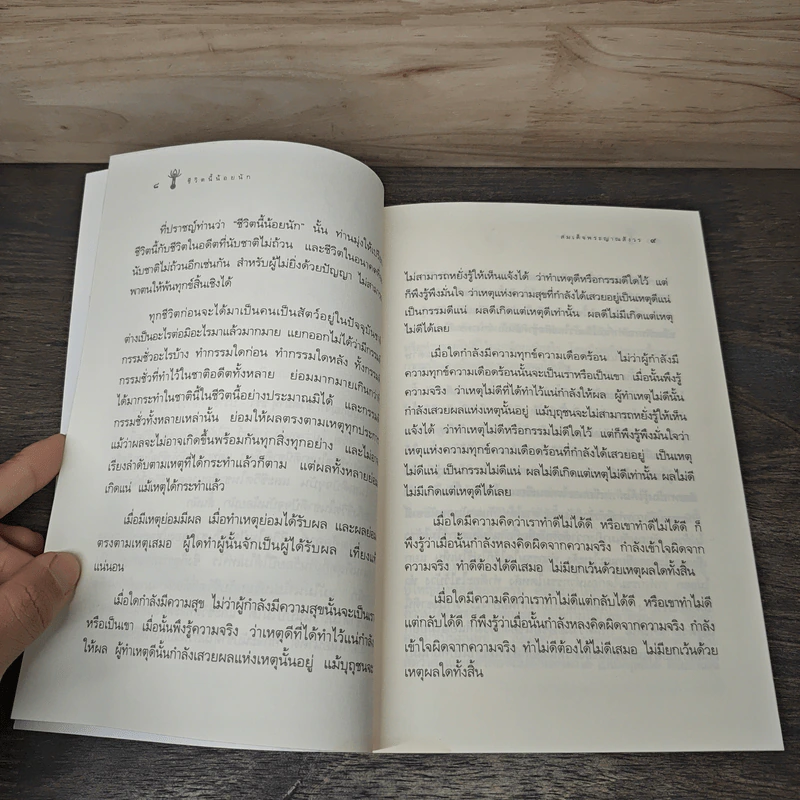 ๘ ชีวิตนี้น้อยนัก
ที่ปราชญ์ท่านว่า “ชีวิตนี้น้อยนัก” นั้น ท่านมุ่งให้
ชีวิตนี้กับชีวิตในอดีตที่นับชาติไม่ถ้วน และชีวิตในอนาคต
นับชาติไม่ถ้วนอีกเช่นกัน สำหรับผู้ไม่ยิ่งด้วยปัญญา
พาตนให้พ้นทุกข์สิ้นเชิงได้
ทุกชีวิตก่อนจะได้มาเป็นคนเป็นสัตว์อยู่ในปัจจุบัน
ต่างเป็นอะไรต่อมิอะไรมาแล้วมากมาย แยกออกไม่ได้ว่ามีกรรม
กรรมชั่วอะไรบ้าง ทำกรรมใดก่อน ทำกรรมใดหลัง ทั้งกรรม
กรรมชั่วที่ทำไว้ในชาติอดีตทั้งหลาย ย่อมมากมายเกินกว่า
ได้มากระทำในชาตินี้ในชีวิตนี้อย่างประมาณมิได้ และกรรม
กรรมชั่วทั้งหลายเหล่านั้น ย่อมให้ผลตรงตามเหตุทุกประการ
แม้ว่าผลจะไม่อาจเกิดขึ้นพร้อมกันทุกสิ่งทุกอย่าง และไม่อาจ
เรียงลำดับตามเหตุที่ได้กระทำแล้วก็ตาม แต่ผลทั้งหลายย่อม
เกิดแน่ แม้เหตุได้กระทำแล้ว
เมื่อมีเหตุย่อมมีผล เมื่อทำเหตุย่อมได้รับผล และผลย่อม
ตรงตามเหตุเสมอ ผู้ใดทำผู้นั้นจักเป็นผู้ได้รับผล เที่ยงแท้
แน่นอน
เมื่อใดกำลังมีความสุข ไม่ว่าผู้กำลังมีความสุขนั้นจะเป็นเรา
หรือเป็นเขา เมื่อนั้นพึงรู้ความจริง ว่าเหตุดีที่ได้ทำไว้แน่กำลัง
ให้ผล ผู้ทำเหตุดีนั้นกำลังเสวยผลแห่งเหตุนั้นอยู่ แม้บุถุชนจะ
สมเด็จพระญาณสังวร ๙
ไม่สามารถหยั่งรู้ให้เห็นแจ้งได้ ว่าทำเหตุดีหรือกรรมดีใดไว้ แต่
ก็พึงรู้พึงมั่นใจ ว่าเหตุแห่งความสุขที่กำลังได้เสวยอยู่เป็นเหตุดีแน่
เป็นกรรมดีแน่ ผลดีเกิดแต่เหตุดีเท่านั้น ผลดีไม่มีเกิดแต่เหตุ
ไม่ดีได้เลย
เมื่อใดกำลังมีความทุกข์ความเดือดร้อน ไม่ว่าผู้กำลังมี
ความทุกข์ความเดือดร้อนนั้นจะเป็นเราหรือเป็นเขา เมื่อนั้นพึงรู้
ความจริง ว่าเหตุไม่ดีที่ได้ทำไว้แน่กำลังให้ผล ผู้ทำเหตุไม่ดีนั้น
กำลังเสวยผลแห่งเหตุนั้นอยู่ แม้บุถุชนจะไม่สามารถหยั่งรู้ให้เห็น
แจ้งได้ ว่าทำเหตุไม่ดีหรือกรรมไม่ดีใดไว้ แต่ก็พึงรู้พึงมั่นใจว่า
เหตุแห่งความทุกข์ความเดือดร้อนที่กำลังได้เสวยอยู่ เป็นเหตุ
ไม่ดีแน่ เป็นกรรมไม่ดีแน่ ผลไม่ดีเกิดแต่เหตุไม่ดีเท่านั้น ผลไม่ดี
ไม่มีเกิดแต่เหตุดีได้เลย
เมื่อใดมีความคิดว่าเราทำดีไม่ได้ดี หรือเขาทำดีไม่ได้ดี ก็
พึงรู้ว่าเมื่อนั้นกำลังหลงคิดผิดจากความจริง กำลังเข้าใจผิดจาก
ความจริง ทำดีต้องได้ดีเสมอ ไม่มียกเว้นด้วยเหตุผลใดทั้งสิ้น
เมื่อใดมีความคิดว่าเราทำไม่ดีแต่กลับได้ดี หรือเขาทำไม่ดี
แต่กลับได้ดี ก็พึงรู้ว่าเมื่อนั้นกำลังหลงคิดผิดจากความจริง กำลัง
เข้าใจผิดจากความจริง ทำไม่ดีต้องได้ไม่ดีเสมอ ไม่มียกเว้นด้วย
เหตุผลใดทั้งสิ้น